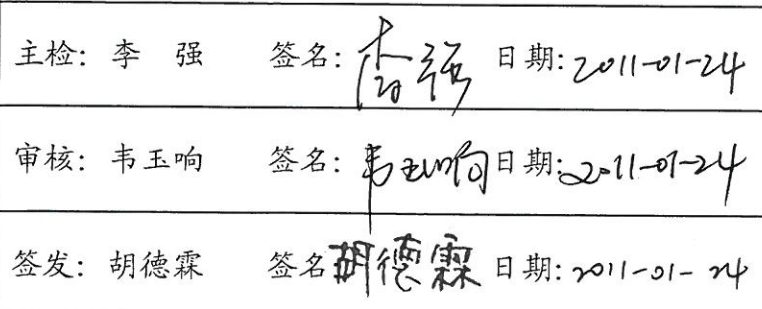 主检: 李 强 签名: 李强 日期: 2011-01-24
审核: 韦玉响 签名: 韦玉响 日期: 2011-01-24
签发: 胡德霖 签名 胡德霖 日期: 2011-01-24